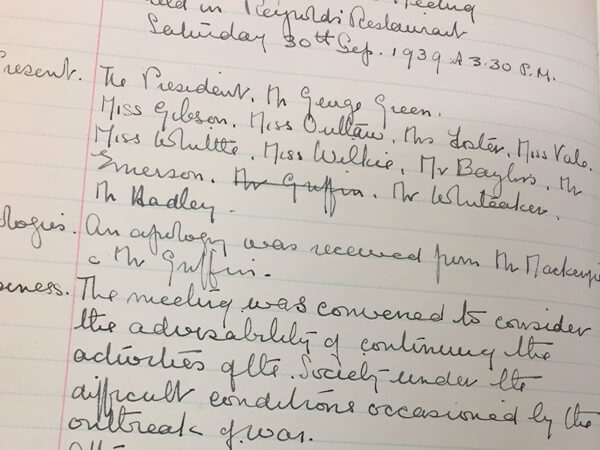 Meeting
held in Reynolds Restaurant
Saturday 30th Sep. 1939 at 3.30 P.M.
Present. The President. Mr George Green.
Miss Gibson. Miss Outlaw. Mrs Foster. Miss Vale.
Miss Whittle. Miss Wilkie. Mr Bayliss. Mr
Emerson. Mr Griffin. Mr Whiteaker.
Mr Hadley.
ologies. An apology was received from Mr Mackenzie
& Mr Griffin.
siness. The meeting was convened to consider
the advisability of continuing the
activities of the Society under the
difficult conditions occasioned by the
outbreak of war.